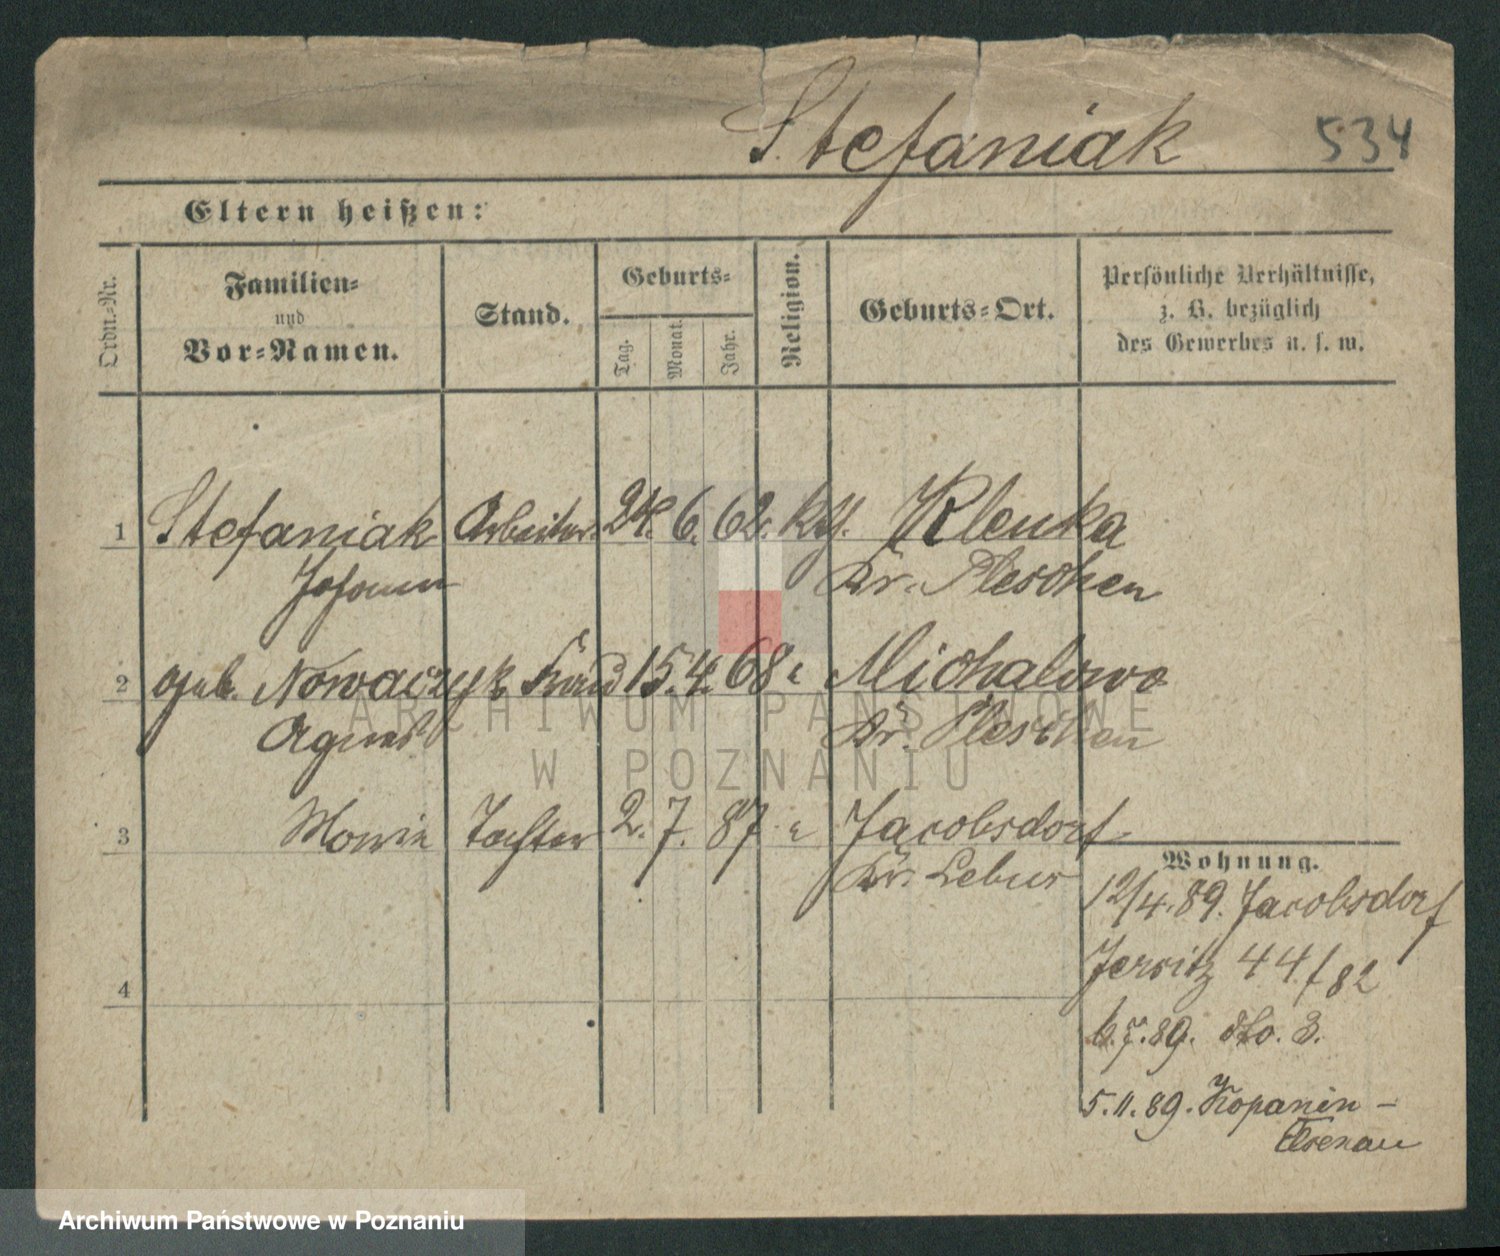 Stefaniak 534
Eltern heißen:
Ordn.-Nr. Familien- und Vor-Namen. Stand. Geburts- Tag. Monat. Jahr. Religion. Geburts-Ort. Persönliche Verhältnisse,
z. B. bezüglich
des Gewerbes u. s. w.
1 Stefaniak Arbeiter 24. 6. 62. kth. Klenka
Johann Kr. Pleschen
2 geb. Nowaczyk 15. 4. 68 " Michalowo
Agnes Kr. Pleschen
3 Marie Tochter 2. 7. 87 " Jacobsdorf
Kr. Lebus
Wohnung.
12/4.89. Jacobsdorf
Jersitz 44/82
6.7.89. dto. 3.
4
5.11.89. Kopanin -
Elsenau
ARCHIWUM PAŃSTWOWE
W POZNANIU
Archiwum Państwowe w Poznaniu